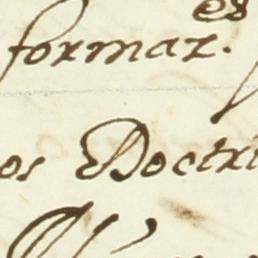 es
formar.
os Doctri